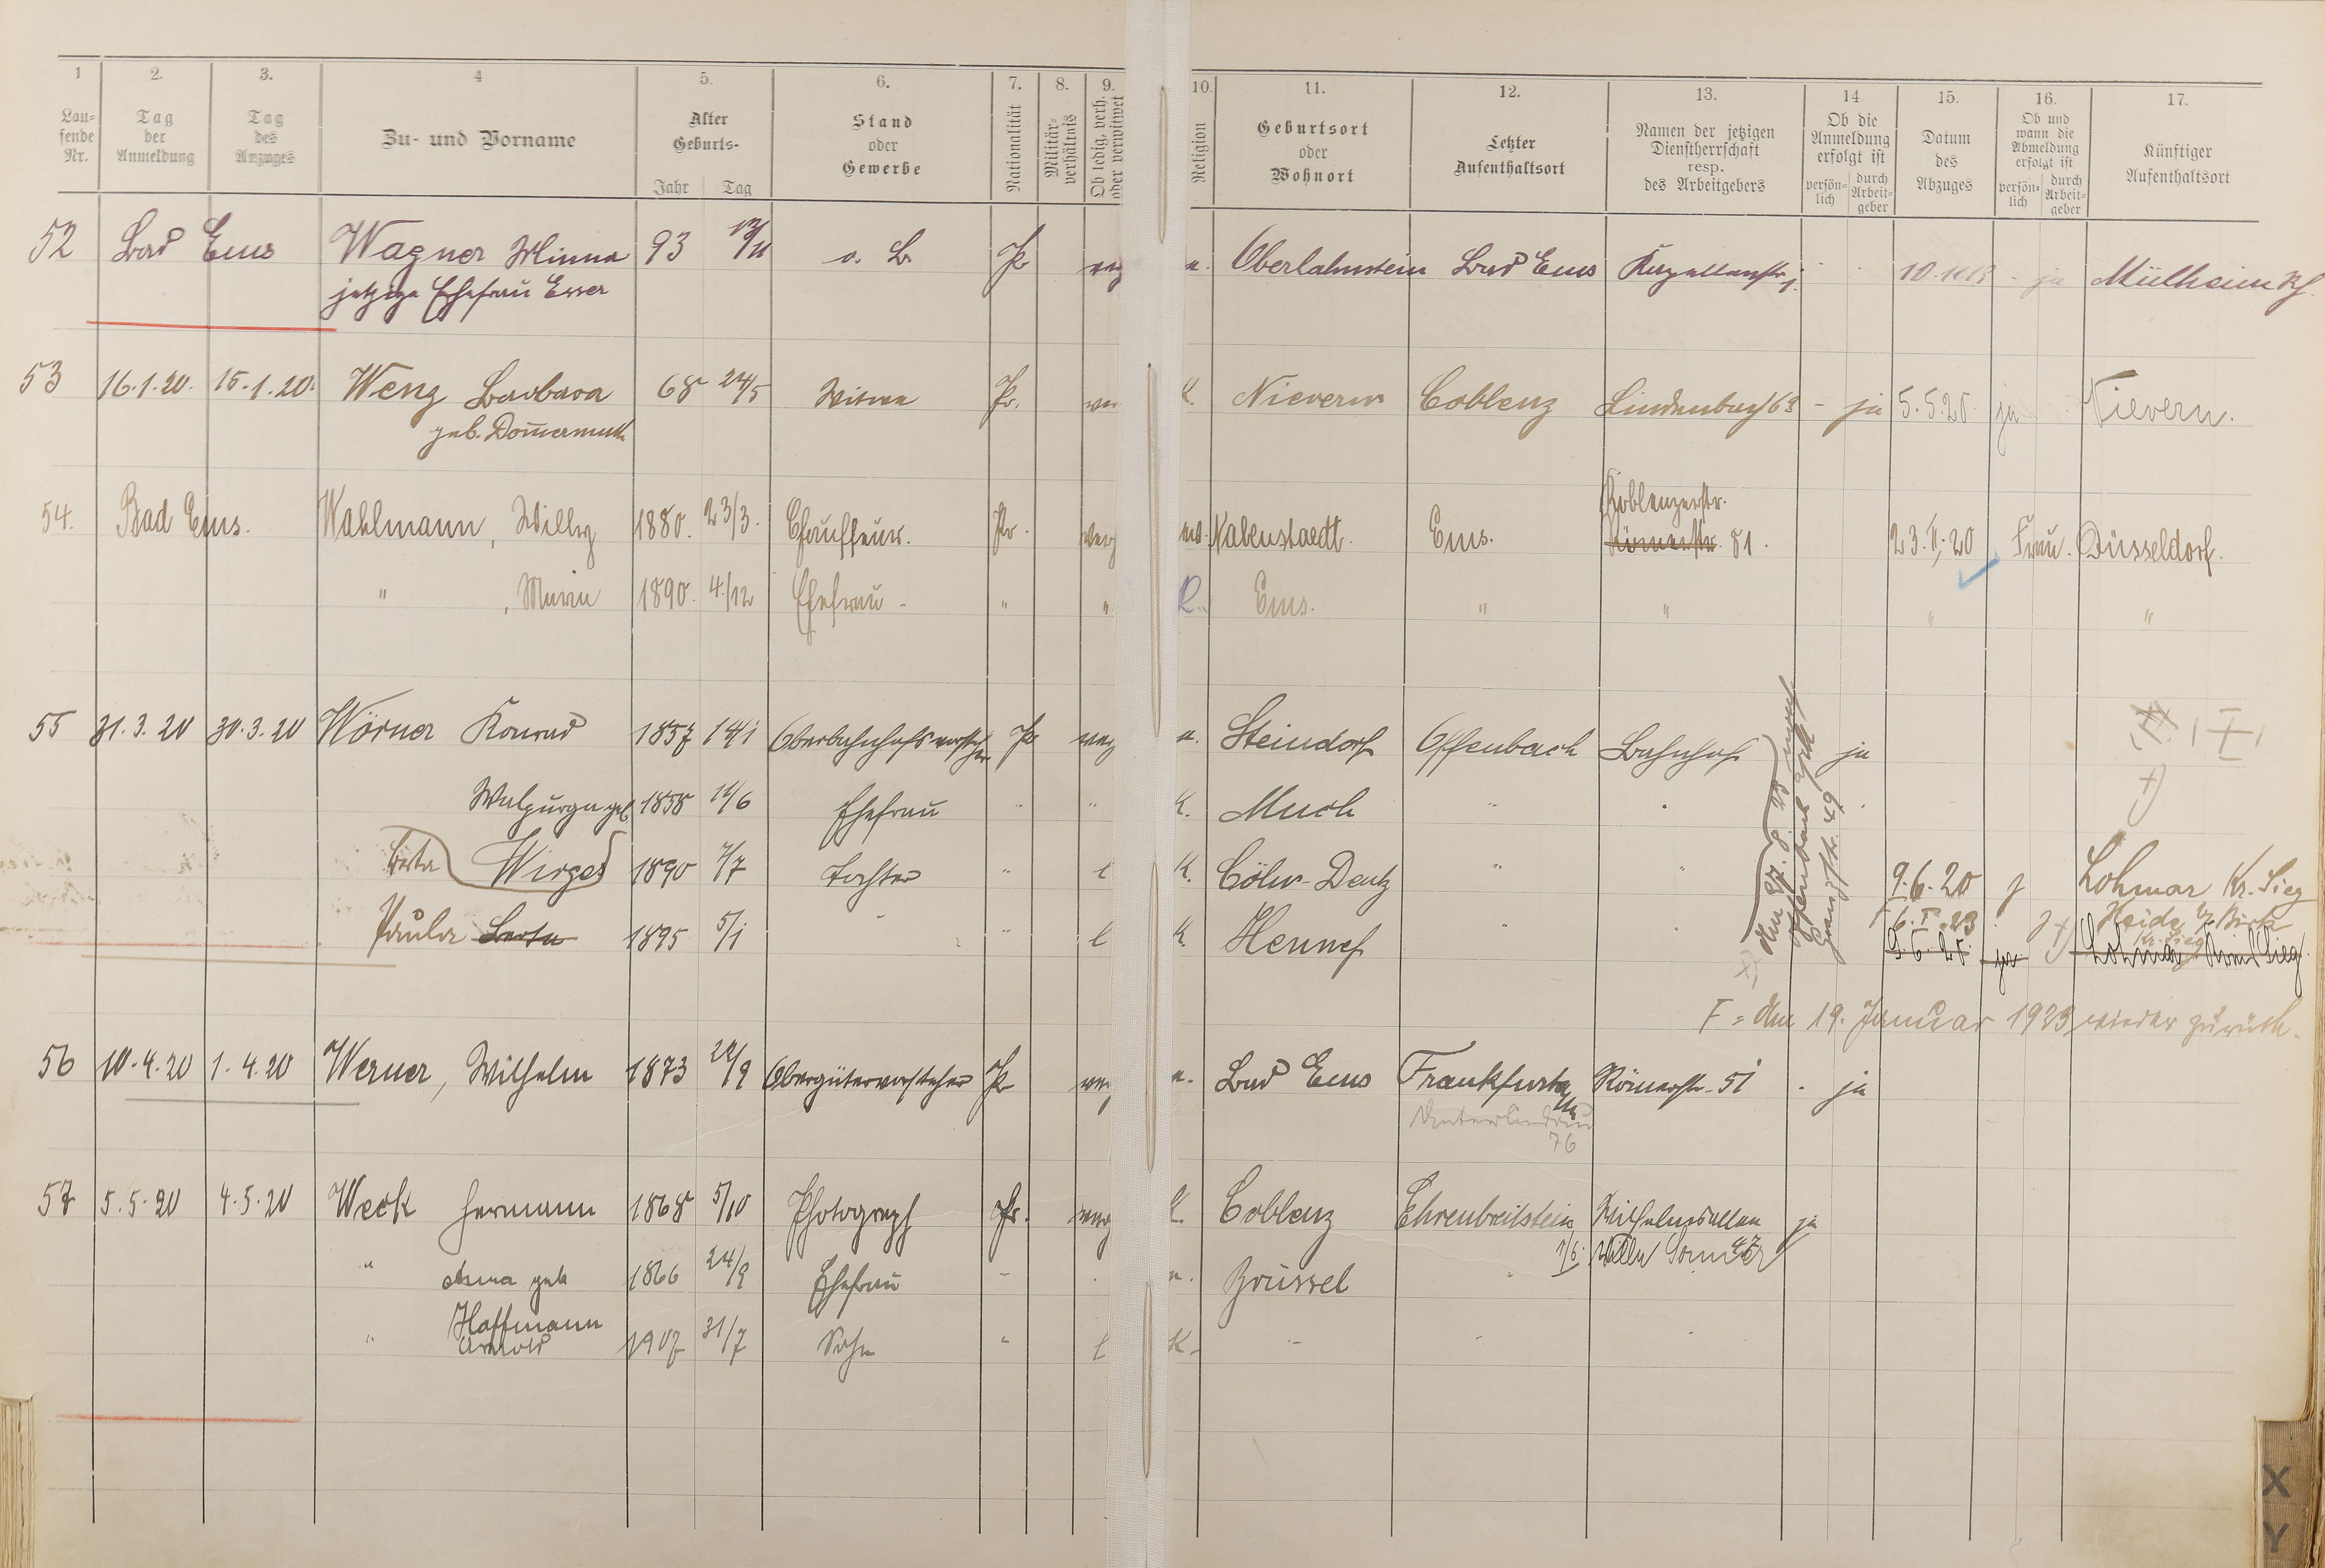 1 2. 3. 4 5. 6. 7. 8. 9. 10. 11. 12. 13. 14 15. 16. 17.
Lau=
fende
Nr.
Tag
der
Anmeldung
Tag
des
Anzuges
Zu- und Vorname
Alter
Geburts-
Jahr Tag
Stand
oder
Gewerbe
Nationalität
Militär-
verhältnis
Ob ledig, verh.
oder verwitwet
Religion
Geburtsort
oder
Wohnort
Letzter
Aufenthaltsort
Namen der jetzigen
Dienstherrschaft
resp.
des Arbeitgebers
Ob die
Anmeldung
erfolgt ist
persön=
lich
durch
Arbeit=
geber
Datum
des
Abzuges
Ob und
wann die
Abmeldung
erfolgt ist
persön=
lich
durch
Arbeit=
geber
Künftiger
Aufenthaltsort
52 Bad Ems Wagner Minna 93 o. B. Pr. Oberlahnstein Bad Ems Kapellenstr. 1. - ja Mülheim
jetzige Ehefrau Esser
53 16.1.20. 15.1.20. Weng Barbara 68 24/5 Witwe Pr. K. Nievern Coblenz Lindenbach 63 - ja 5.5.20. ja Nievern.
geb. Dommermuth
Koblenzerstr.
54. Bad Ems. Wahlmann, Willy 1880. 23/3. Chauffeur. Pr. Nabenstaedt. Ems. Römerstr. 81. 23.II.20 Frau. Düsseldorf.
" , Maria 1890. 4./12 Ehefrau " " Ems. " " " "
55 31.3.20 30.3.20 Wörner Konrad 1857 14/1 Oberbahnhofsvorsteher Pr. Steindorf Offenbach Bahnhof ja
Walpurga geb. 1858 Ehefrau " " K. Much "
Berta Wirges 1890 7/7 Tochter " l K. Cöln-Deutz " " 9.6.20 J Lohmar Kr. Sieg
Paula Berta 1895 5/1 " " l K. Hennef 6.I.23 Heide b/ Birk
Kr. Sieg
9.6.20. ja Lohmar
F = den 19. Januar 1923 wieder zurück.
56 10.4.20 1.4.20 Werner, Wilhelm 1873 Obergütervorsteher Pr Bad Ems Frankfurt a/M. Römerstr. 51 - ja
Unterlindau
76
57 5.5.20 4.5.20 Weck Hermann 1868 5/10 Photograph Pr. K. Coblenz Ehrenbreitstein Wilhelmsallee ja
" Anna geb 1866 24/9 Ehefrau " Brüssel 1/6. Villa
Hoffmann
" Arnold 1907 31/7 Sohn " l K. " " "
X
Y